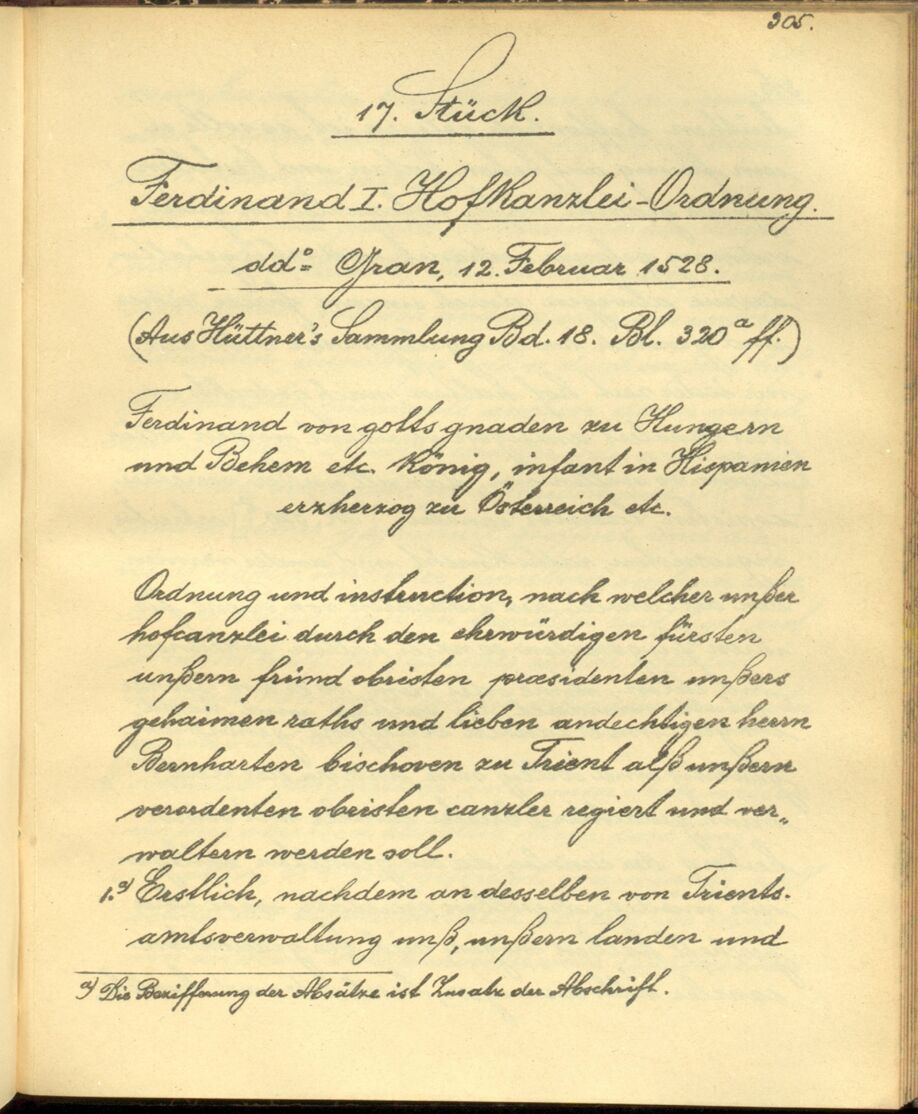 305.
17. Stück.
Ferdinand I. Hofkanzlei-Ordnung.
ddº= Gran, 12. Februar 1528.
(Aus Hüttner's Sammlung Bd. 18. Bl. 320ª ff.)
Ferdinand von gotts gnaden zu Hungern
und Behem etc. König, infant in Hispanien
erzherzog zu Österreich etc.
Ordnung und instruction, nach welcher unßer
hofcanzlei durch den ehrwürdigen fürsten
unßern fründ obristen præsidenten unßers
gehaimen raths und lieben andechtigen herrn
Bernharten bischoven zu Trient alß unßern
verordenten obristen canzler regiert und ver„
waltern werden soll.
1.ª) Erstlich, nachdem an desselben von Trients.
amtsverwaltung unß, unßern landen und
ª) Die Bezifferung der Absätze ist Zusatz der Abschrift.